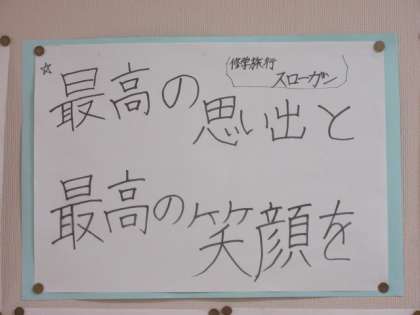 ☆
修学旅行
スローガン
最高の思い出と
最高の笑顔を